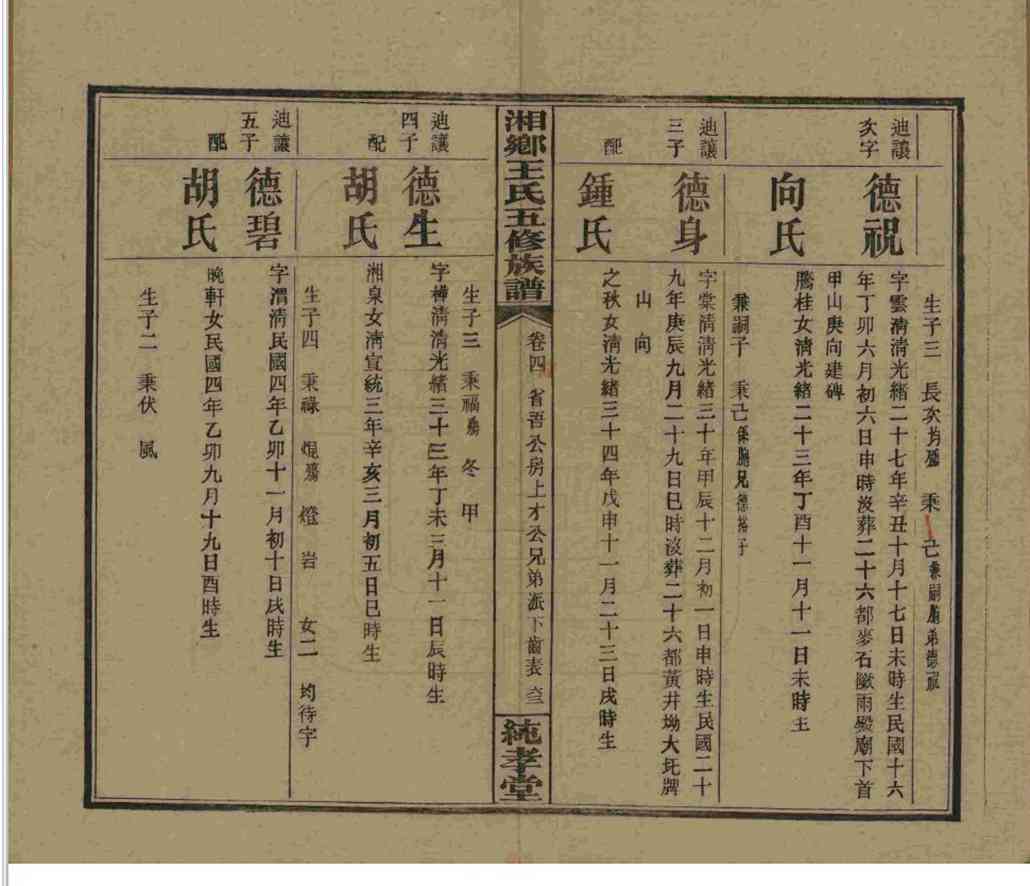 生子三 長次均殤 乘己兼嗣胞弟德
迪讓
次字
德祝
字雲清清光緒二十七年辛丑十月十七日未時生民國十六
年丁卯六月初六日申時沒葬二十六都麥石雨殿廟下首
甲山庚向建碑
向氏
騰桂女清光緒二十三年丁酉十一月十一日未時生
兼嗣子 乘己係胞兄德裕子
迪讓
三子
德身
字棠清清光緒三十年甲辰十二月初一日申時生民國二十
九年庚辰九月二十九日巳時沒葬二十六都黃井坳大坵牌
山向
配
鍾氏
之秋女清光緒三十四年戊申十一月二十三日戌時生
湘鄉王氏五修族譜
卷四 省吾公房上才公兄弟派下齒表
純孝堂
生子三 乘福殤 冬 甲
迪讓
四子
德生
字樺清清光緒三十三年丁未三月十一日辰時生
配
胡氏
湘泉女清宣統三年辛亥三月初五日巳時生
生子四 乘祿 焜殤 燈 岩 女二 均待字
迪讓
五子
德碧
字渭清民國四年乙卯十一月初十日戌時生
配
胡氏
曉軒女民國四年乙卯九月十九日酉時生
生子二 乘伏 風